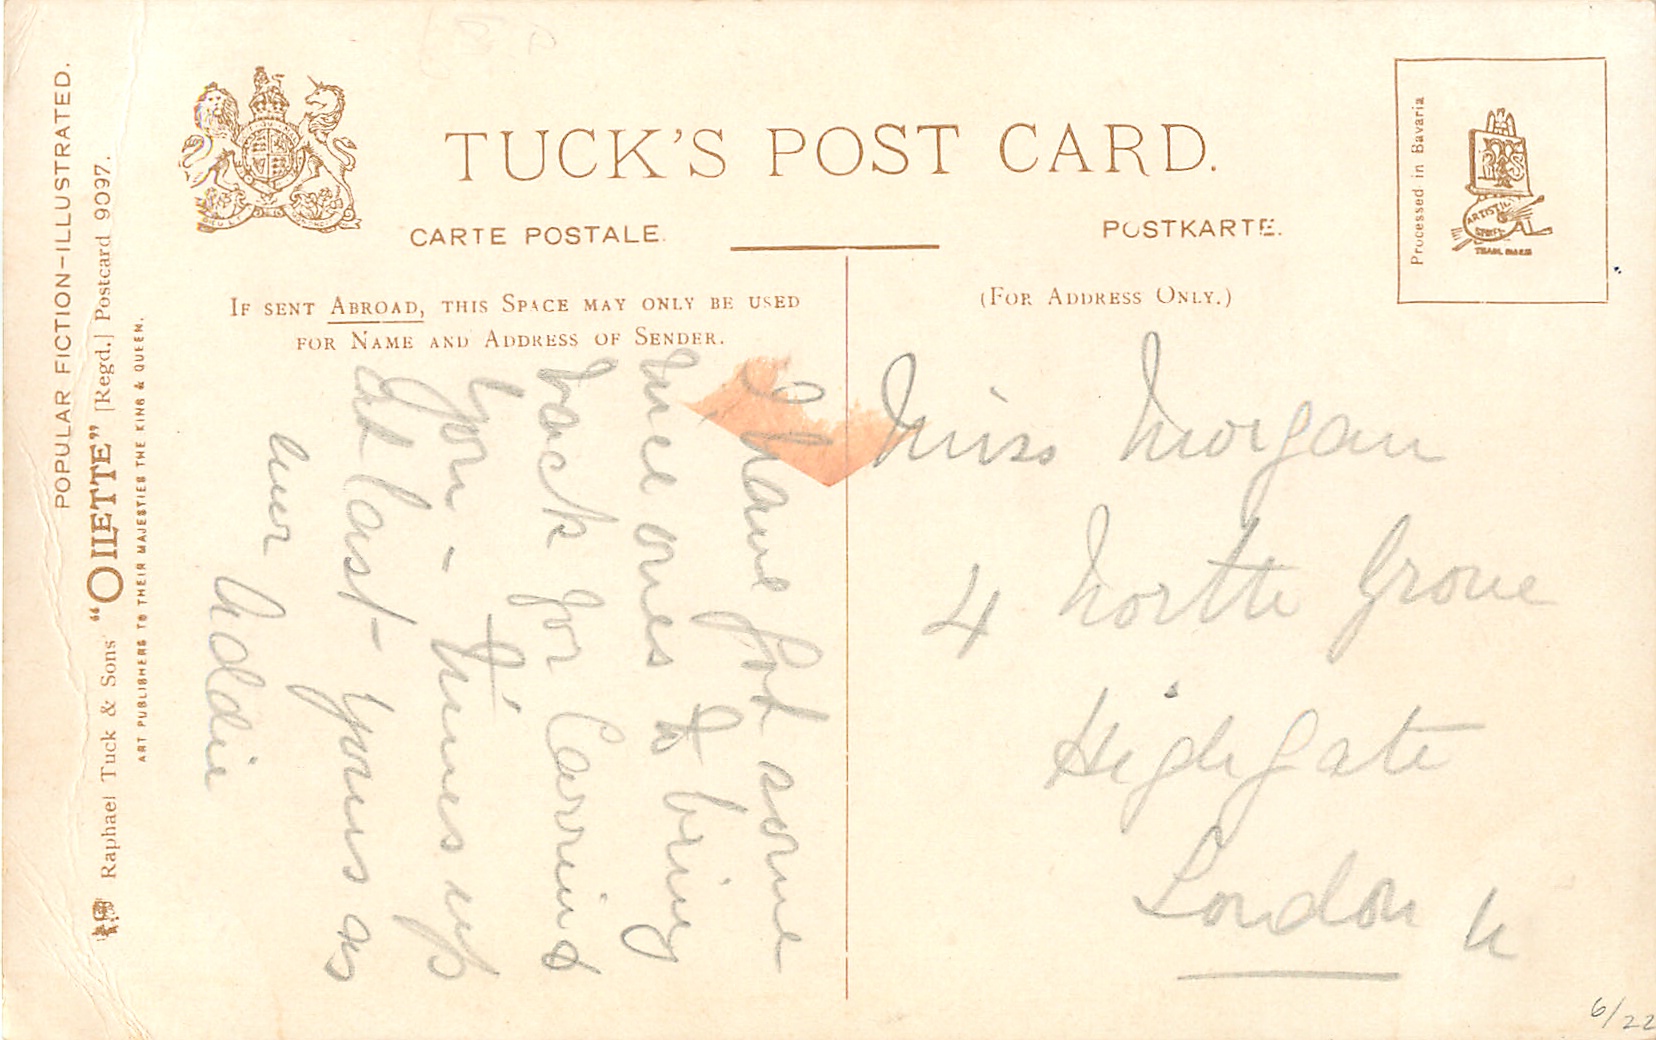 TUCK'S POST CARD.
CARTE POSTALE.
POSTKARTE.
Processed in Bavaria
ARTISTIC
TRADE MARK
IF SENT ABROAD, THIS SPACE MAY ONLY BE USED
FOR NAME AND ADDRESS OF SENDER.
(FOR ADDRESS ONLY.)
I have got some
nice ones to bring
back for Carrie &
you - Times up
at last - yours as
ever Addie
Miss Morgan
4 North Grove
Highgate
London N
POPULAR FICTION-ILLUSTRATED.
Raphael Tuck & Sons' "OILETTE" [Regd.] Postcard 9097.
ART PUBLISHERS TO THEIR MAJESTIES THE KING & QUEEN.
6/22